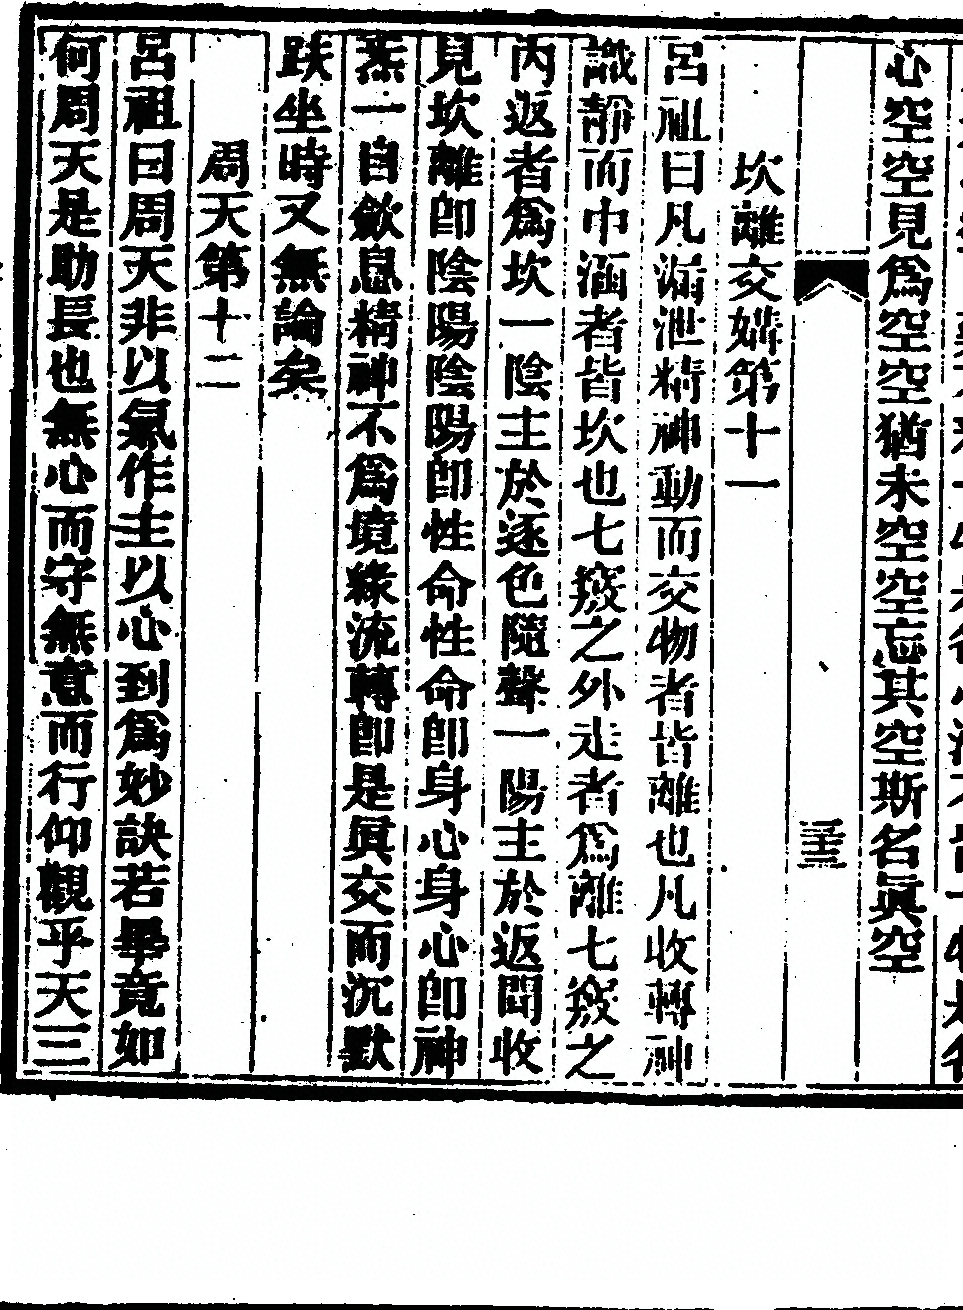 心空空見爲空空猶未空空忘其空斯名眞空
三三
坎離交媾第十一
呂祖曰凡漏泄精神動而交物者皆離也凡收轉神
識靜而中涵者皆坎也七竅之外走者爲離七竅之
內返者爲坎一陰主於逐色隨聲一陽主於返聞收
見坎離卽陰陽陰陽卽性命性命卽身心身心卽神
炁一自斂息精神不爲境緣流轉卽是眞交而沉默
趺坐時又無論矣
周天第十二
呂祖曰周天非以氣作主以心到爲妙訣若畢竟如
何周天是助長也無心而守無意而行仰觀乎天三